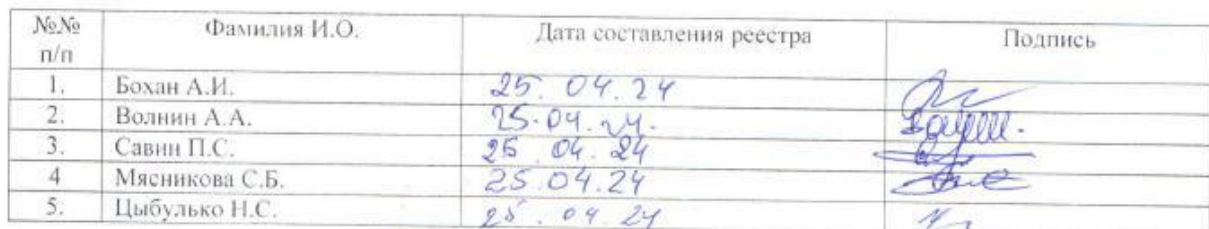 №№ п/п Фамилия И.О. Дата составления реестра Подпись
1. Бохан А.И. 25.04.24
2. Волнин А.А. 25.04.24.
3. Савин П.С. 25.04.24
4 Мясникова С.Б. 25.04.24
5. Цыбулько Н.С. 25.04.24